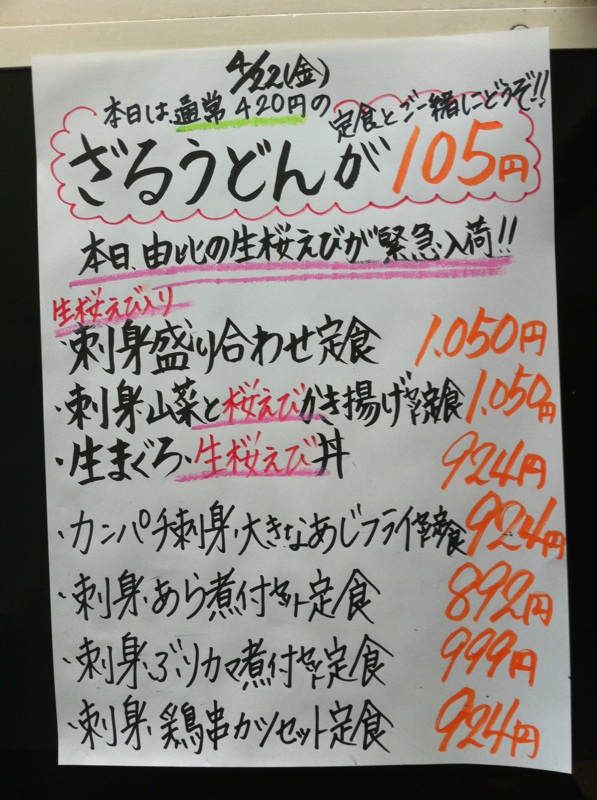 4/22(金)
本日は、通常420円の
定食とご一緒にどうぞ!!
ざるうどんが105円
本日、由比の生桜えびが緊急入荷!!
生桜えび入り
・刺身盛り合わせ定食 1.050円
・刺身、山菜と桜えびかき揚げセット定食 1.050円
・生まぐろ、生桜えび丼 924円
・カンパチ刺身、大きなあじフライセット定食 924円
・刺身、あら煮付セット定食 892円
・刺身、ぶりカマ煮付セット定食 999円
・刺身、鶏串カツセット定食 924円